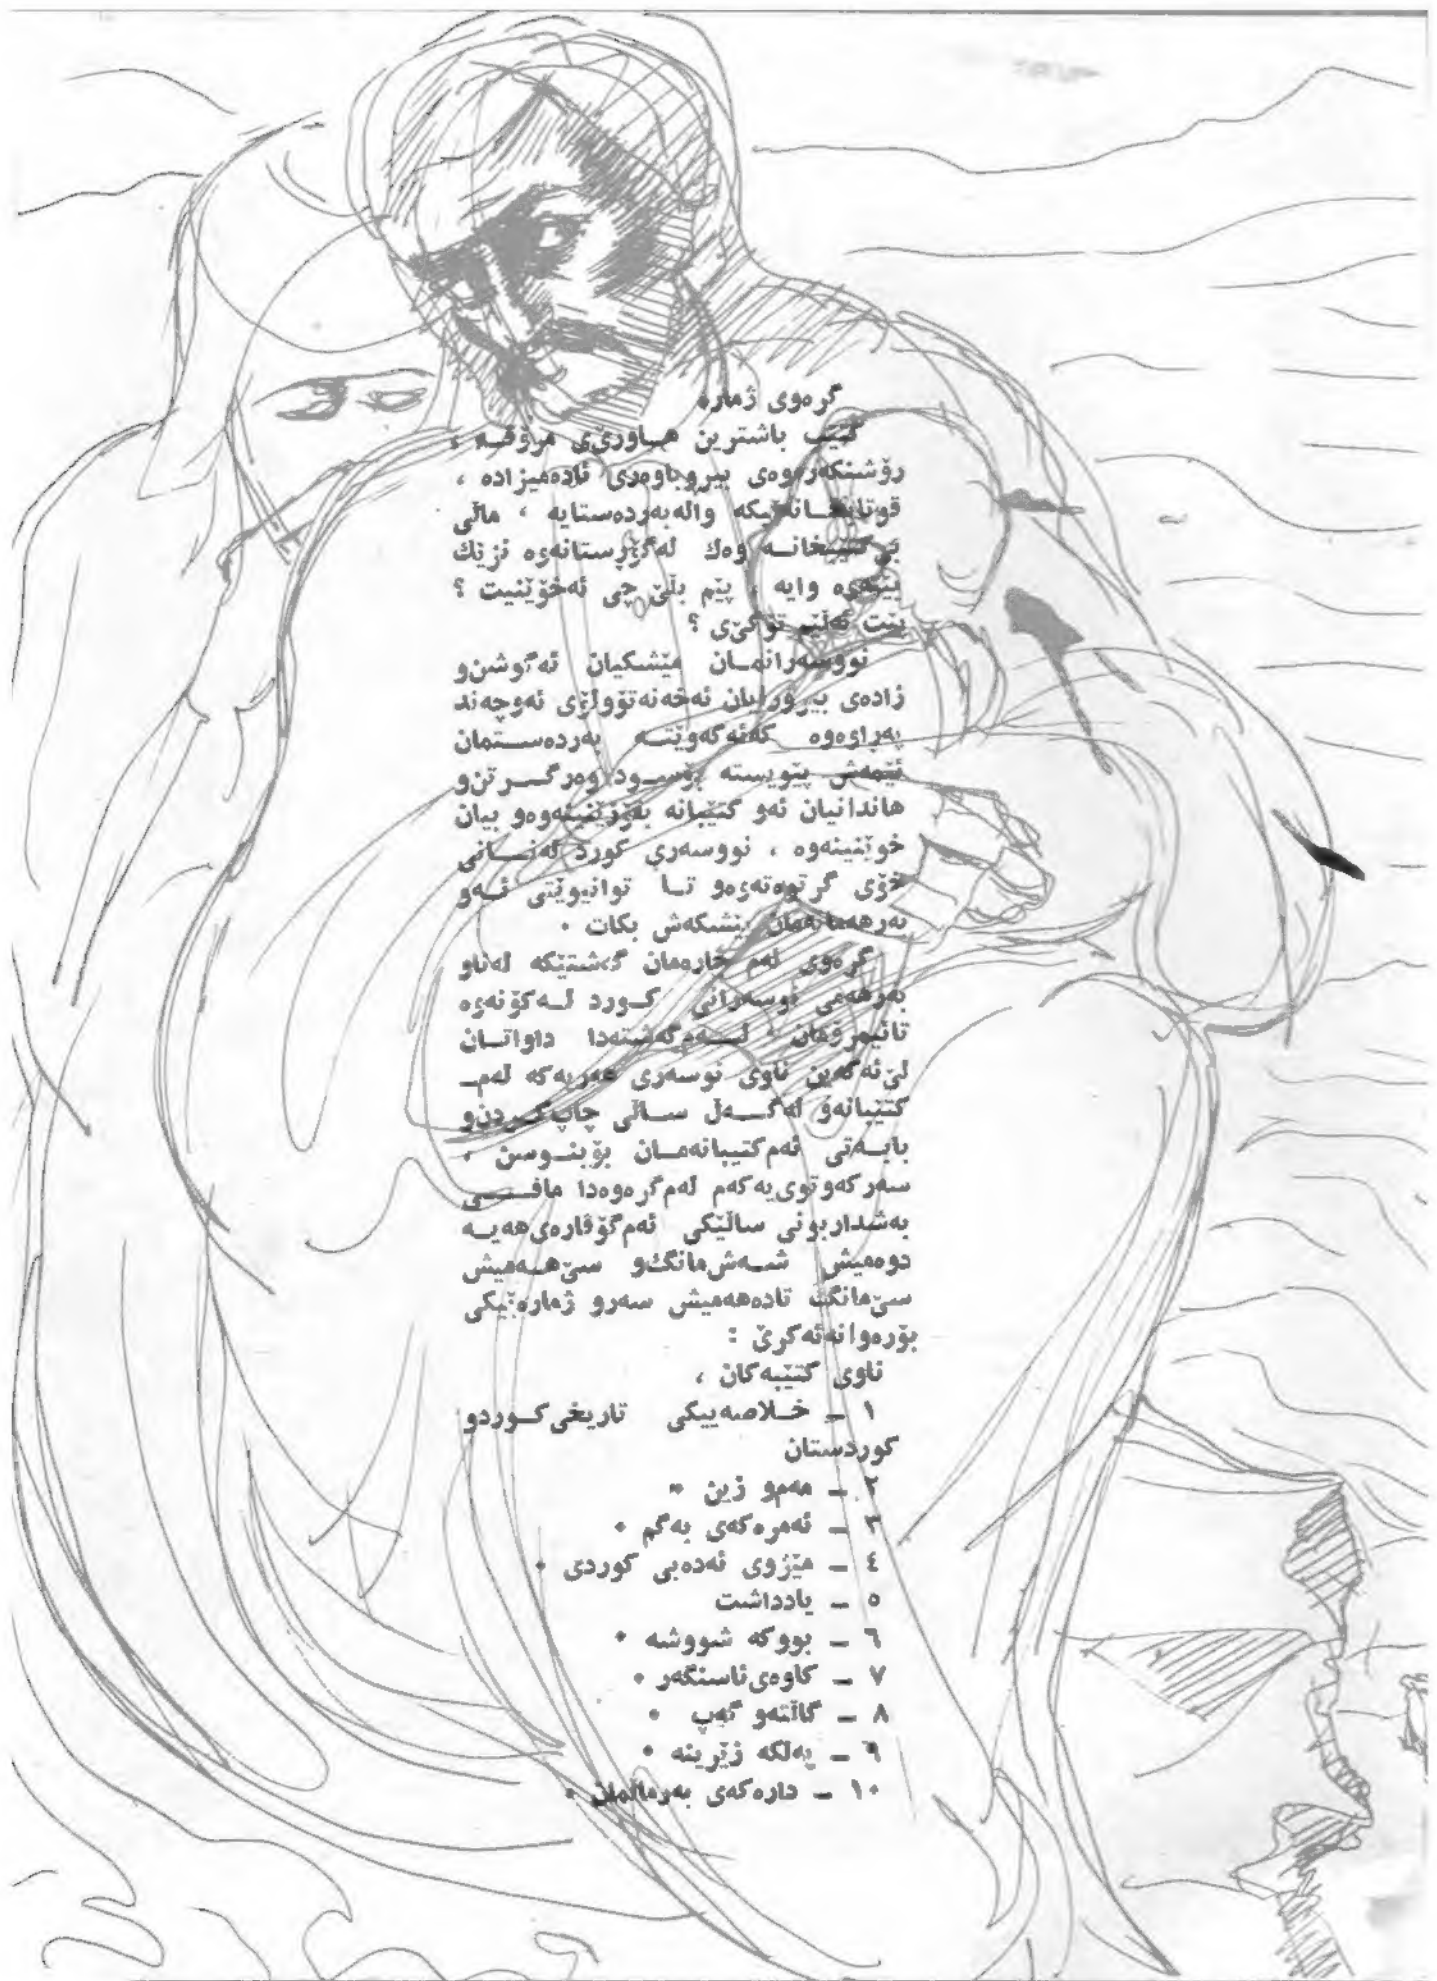 گرەوی ژمارە
کتێب باشترین هـاوڕێی مرۆڤـە ،
رۆشنکەرەوەی بیروباوەڕی ئادەمیزادە ،
قوتابخـانەێیکە والەبەردەستایە ، ماڵی
بێ کتێبخانـە وەك لەگۆڕستانەوە نزێك
بێتەوە وایە ، پێم بڵێ چی ئەخۆێنیت ؟
پێت ئەڵێم تۆ کێی ؟
نووسەرانمـان مێشکیان ئەگوشن‌و
زادەی بیروڕایان ئەخەنەتۆوتۆی ئەوچەند
پەڕاوەوە کەئەکەوێتـە بەردەسـتمان
ئێمەش پێویستە بۆسـود وەرگـرتن‌و
هاندانیان ئەو کتێبانە بقۆزێنینەوەو بیان
خوێنینەوە ، نووسەری کورد لەنـانی
خۆی گرتوەتەوەو تـا توانیوێتی ئـەو
بەرهەمانەمان پێشکەش بکات ٠
گرەوی لەم جارەمان گەشتێکە لەناو
بەرهەمی نوسەرانی کـورد لـەکۆنەوە
تائیمڕۆمان ، لـەم‌گەشتەدا داواتـان
لێ‌ئەکەین ناوی نوسەری هەریەکە لەمـ
کتێبانەو لەگـەڵ سـاڵی چاپ‌کـردن‌و
بابـەتی ئەم کتیبانەمـان بۆبنـوسن ،
سەرکەوتوی‌یەکەم لەم‌گرەوەدا مافـی
بەشداربونی ساڵێکی ئەم‌گۆڤارەی‌هەیـە
دوەمیش شـەش‌مانگ‌و سێ‌هـەمیش
سێ‌مانگ تادەهەمیش سەرو ژمارەێیکی
بۆرەوانەئەکرێ :
ناوی کتێبەکان ،
١ ـ خـلاصەییکی تاریخی‌کـوردو
کوردستان
٢ ـ مەم‌و زین ٠
٣ ـ ئەمرەکەی بەگم ٠
٤ ـ مێژوی ئەدەبی کوردی ٠
٥ ـ یادداشت
٦ ـ بووکە شووشە ٠
٧ ـ کاوەی‌ئاسنگەر ٠
٨ ـ گاڵتەو گەپ ٠
٩ ـ پەلکە زێرینە ٠
١٠ ـ دارەکەی بەرماڵمان ٠